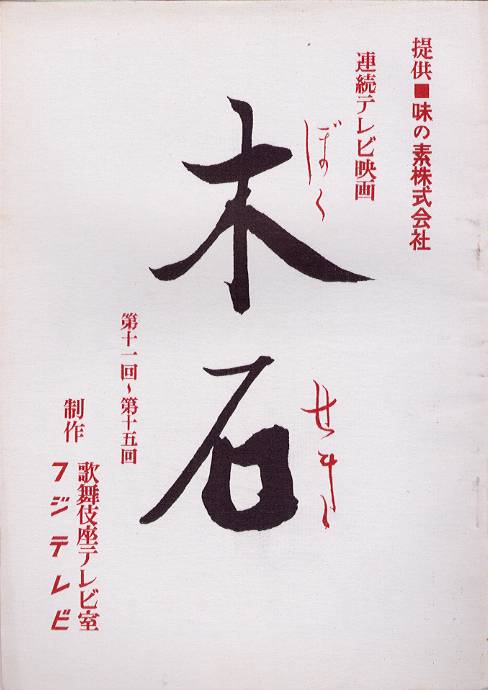 提供■味の素株式会社
連続テレビ映画
木石
ぼくせき
第十一回〜第十五回
制作
歌舞伎座テレビ室
フジテレビ